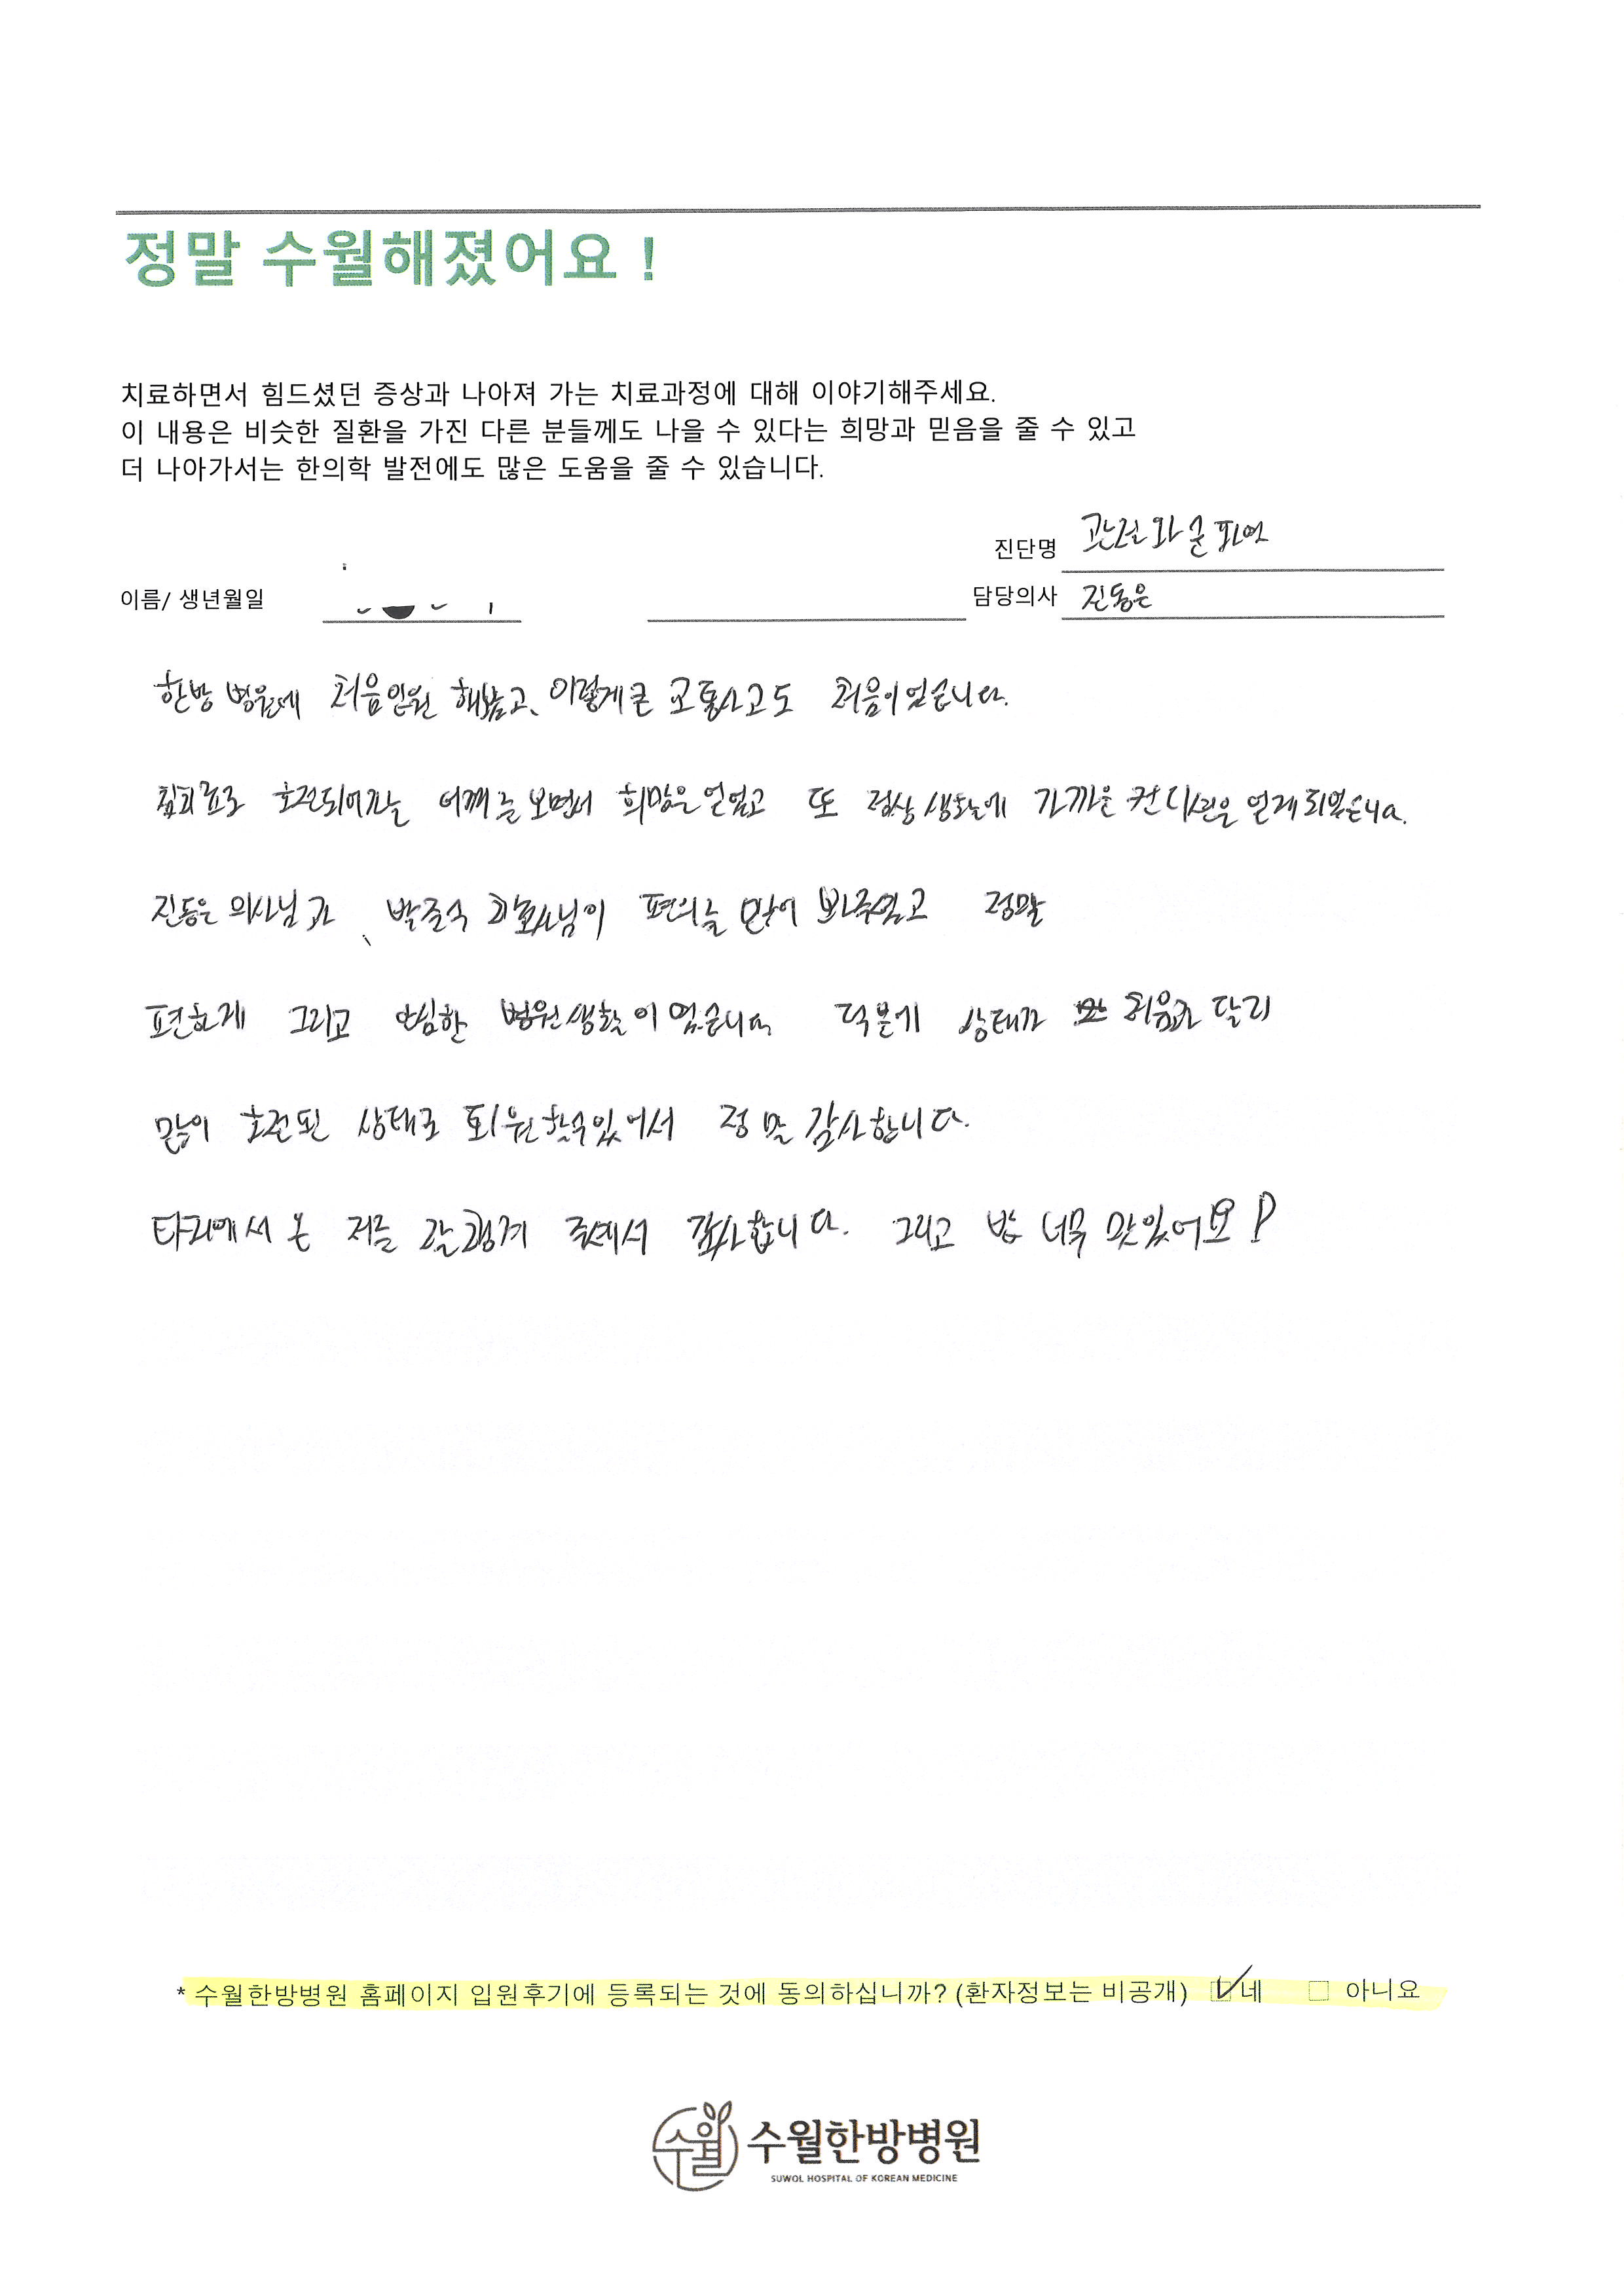 정말 수월해졌어요 !
치료하면서 힘드셨던 증상과 나아져 가는 치료과정에 대해 이야기해주세요.
이 내용은 비슷한 질환을 가진 다른 분들께도 나을 수 있다는 희망과 믿음을 줄 수 있고
더 나아가서는 한의학 발전에도 많은 도움을 줄 수 있습니다.
진단명 관절와순파열
이름/ 생년월일 담당의사 진동은
한방 병원에 처음입원 해봤고, 이렇게큰 교통사고도 처음이었습니다.
침치료로 호전되어가는 어깨를 보면서 희망을 얻었고 또 정상 생활에 가까운 컨디션을 얻게 되었습니다.
진동은 의사님과, 박준식 님이 편의를 많이 봐주셨고 정말
편하게 그리고 안심한 병원생활이었습니다 덕분에 상태가 처음과 달리
많이 호전된 상태로 퇴원할수있어서 정말 감사합니다.
타지에서 온 저를 잘 챙겨 주셔서 감사합니다. 그리고 밥 너무 맛있어요!
* 수월한방병원 홈페이지 입원후기에 등록되는 것에 동의하십니까? (환자정보는 비공개) ☑네 □ 아니요
수월 수월한방병원
SUWOL HOSPITAL OF KOREAN MEDICINE